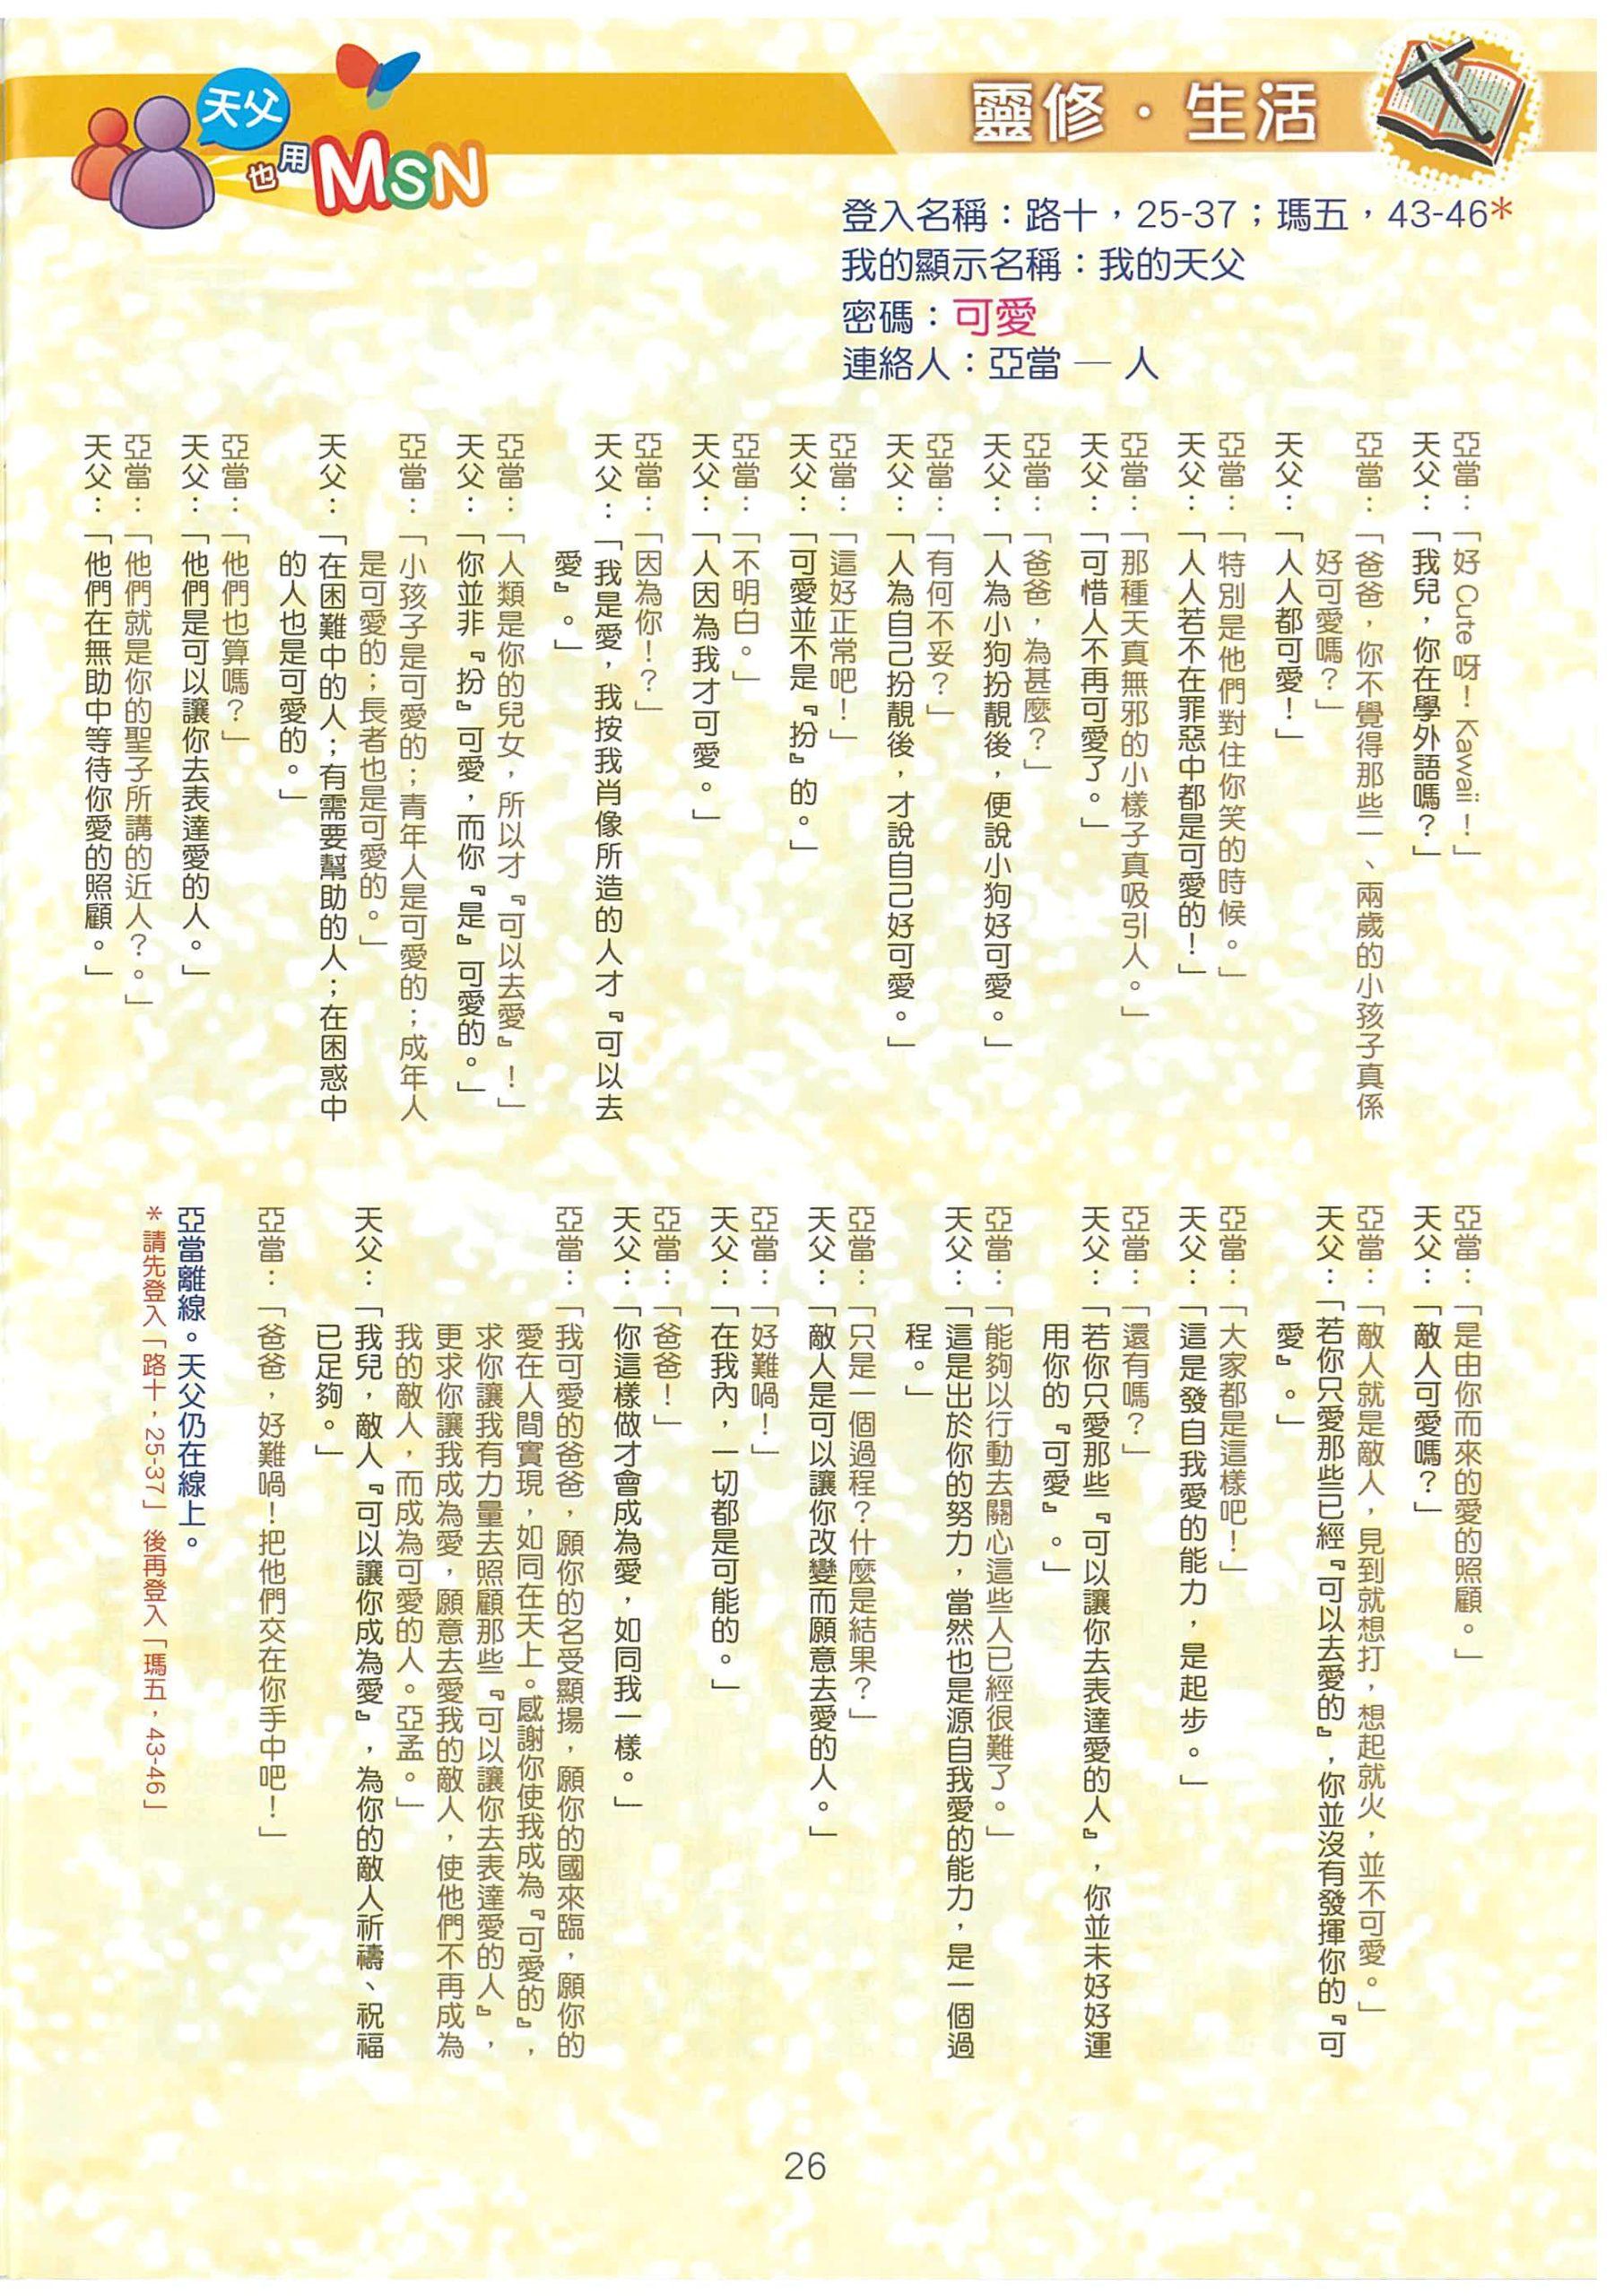 靈修·生活
天父
也用
MSN
登入名稱：路十，25-37；瑪五，43-46*
我的顯示名稱：我的天父
密碼：可愛
連絡人：亞當 — 人
亞當：「好 Cute 呀！Kawaii！」
天父：「我兒，你在學外語嗎？」
亞當：「爸爸，你不覺得那些一、兩歲的小孩子真係
好可愛嗎？」
天父：「人人都可愛！」
亞當：「特別是他們對住你笑的時候。」
天父：「人人若不在罪惡中都是可愛的！」
亞當：「那種天真無邪的小樣子真吸引人。」
天父：「可惜人不再可愛了。」
亞當：「爸爸，為甚麼？」
天父：「人為小狗扮靚後，便說小狗好可愛。」
亞當：「有何不妥？」
天父：「人為自己扮靚後，才說自己好可愛。」
亞當：「這好正常吧！」
天父：「可愛並不是『扮』的。」
亞當：「不明白。」
天父：「人因為我才可愛。」
亞當：「因為你！？」
天父：「我是愛，我按我肖像所造的人才『可以去
愛』。」
亞當：「人類是你的兒女，所以才『可以去愛』！」
天父：「你並非『扮』可愛，而你『是』可愛的。」
亞當：「小孩子是可愛的；青年人是可愛的；成年人
是可愛的；長者也是可愛的。」
天父：「在困難中的人；有需要幫助的人；在困惑中
的人也是可愛的。」
亞當：「他們也算嗎？」
天父：「他們是可以讓你去表達愛的人。」
亞當：「他們就是你的聖子所講的近人？。」
天父：「他們在無助中等待你愛的照顧。」
亞當：「是由你而來的愛的照顧。」
天父：「敵人可愛嗎？」
亞當：「敵人就是敵人，見到就想打，想起就火，並不可愛。」
天父：「若你只愛那些已經『可以去愛的』，你並沒有發揮你的『可
愛』。」
亞當：「大家都是這樣吧！」
天父：「這是發自我愛的能力，是起步。」
亞當：「還有嗎？」
天父：「若你只愛那些『可以讓你去表達愛的人』，你並未好好運
用你的『可愛』。」
亞當：「能夠以行動去關心這些人已經很難了。」
天父：「這是出於你的努力，當然也是源自我愛的能力，是一個過
程。」
亞當：「只是一個過程？什麼是結果？」
天父：「敵人是可以讓你改變而願意去愛的人。」
亞當：「好難喎！」
天父：「在我內，一切都是可能的。」
亞當：「爸爸！」
天父：「你這樣做才會成為愛，如同我一樣。」
亞當：「我可愛的爸爸，願你的名受顯揚，願你的國來臨，願你的
愛在人間實現，如同在天上。感謝你使我成為『可愛的』，
求你讓我有力量去照顧那些『可以讓你去表達愛的人』，
更求你讓我成為愛，願意去愛我的敵人，使他們不再成為
我的敵人，而成為可愛的人。亞孟。」
天父：「我兒，敵人『可以讓你成為愛』，為你的敵人祈禱、祝福
已足夠。」
亞當：「爸爸，好難喎！把他們交在你手中吧！」
亞當離線。天父仍在線上。
*請先登入「路十，25-37」後再登入「瑪五，43-46」
26